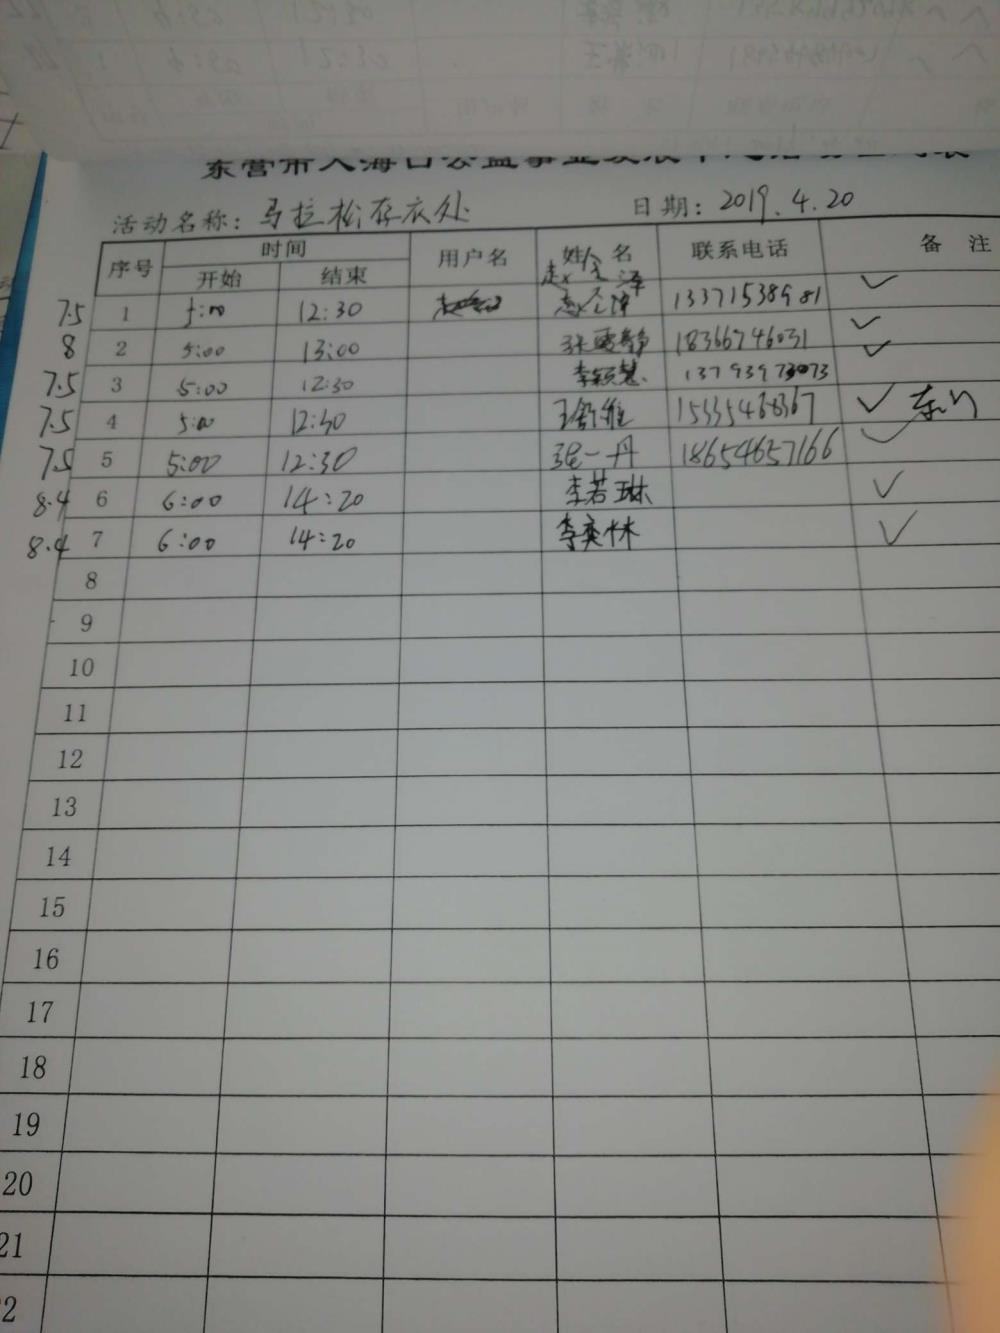 东营市入海口公益事业发展中心活动签到表
活动名称：马拉松存衣处 日期：2019.4.20
序号 时间 用户名 姓名 联系电话 备注
开始 结束
7.5 1 5:00 12:30 13371538981 ✓
8 2 5:00 13:00 18366746031 ✓
7.5 3 5:00 12:30 李颖慧 13793973073 ✓
7.5 4 5:00 12:30 15335468367 ✓
7.5 5 5:00 12:30 张一丹 18654657166 ✓
8.4 6 6:00 14:20 李若琳 ✓
8.4 7 6:00 14:20 李奕林 ✓
8
9
10
11
12
13
14
15
16
17
18
19
20
21